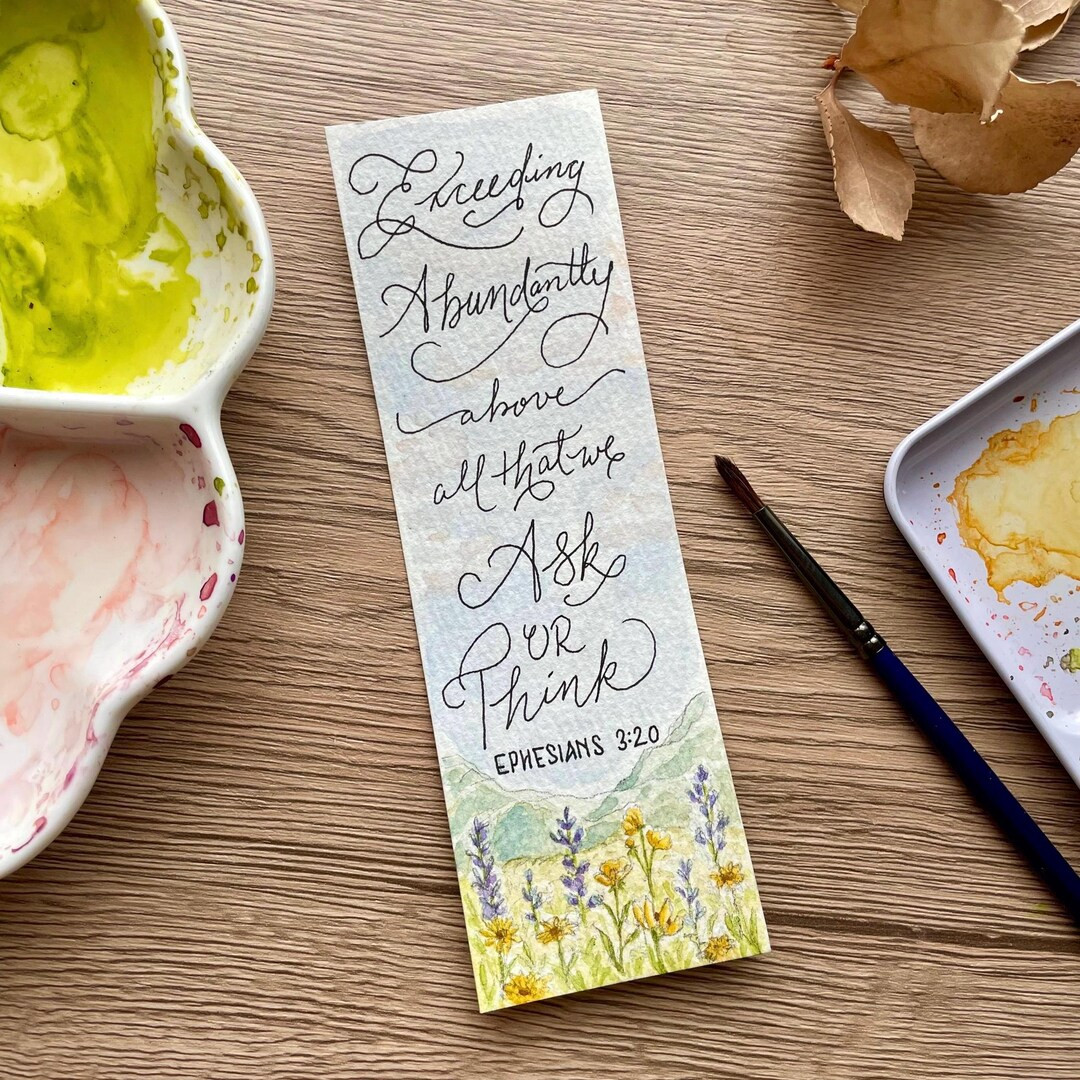 Exceeding
Abundantly
above
all that we
Ask
OR
Think
EPHESIANS 3:20